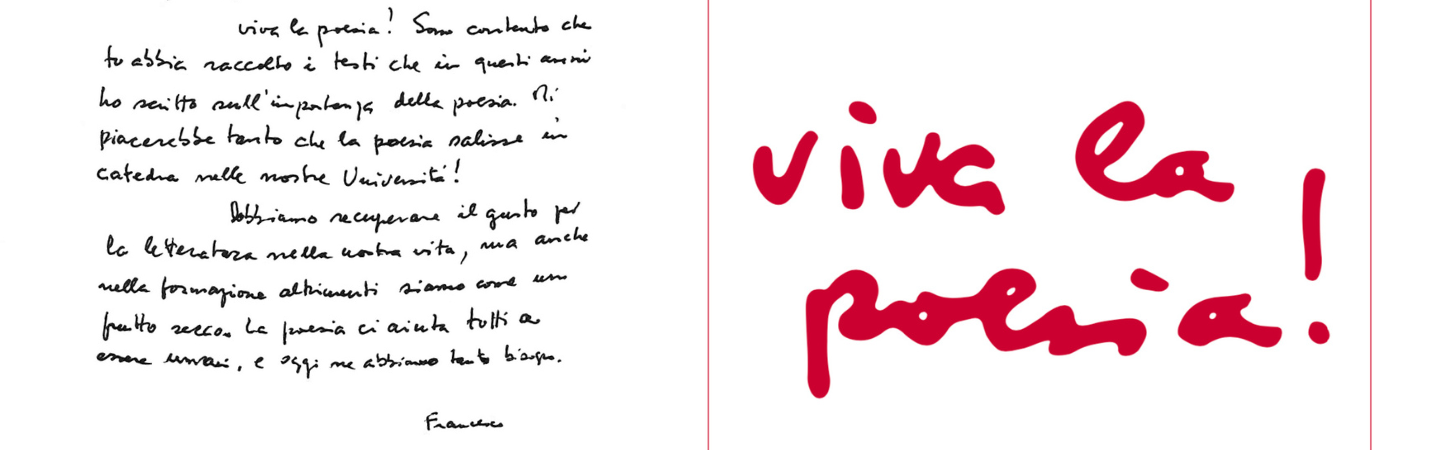 viva la poesia! Sono contento che
tu abbia raccolto i testi che in questi anni
ho scritto sull'importanza della poesia. Mi
piacerebbe tanto che la poesia salisse in
catedra nelle nostre Università!
Dobbiamo recuperare il gusto per
la letteratura nella nostra vita, ma anche
nella formazione altrimenti siamo come un
frutto secco. La poesia ci aiuta tutti a
essere umani, e oggi ne abbiamo tanto bisogno.
Francesco
viva la
poesia!